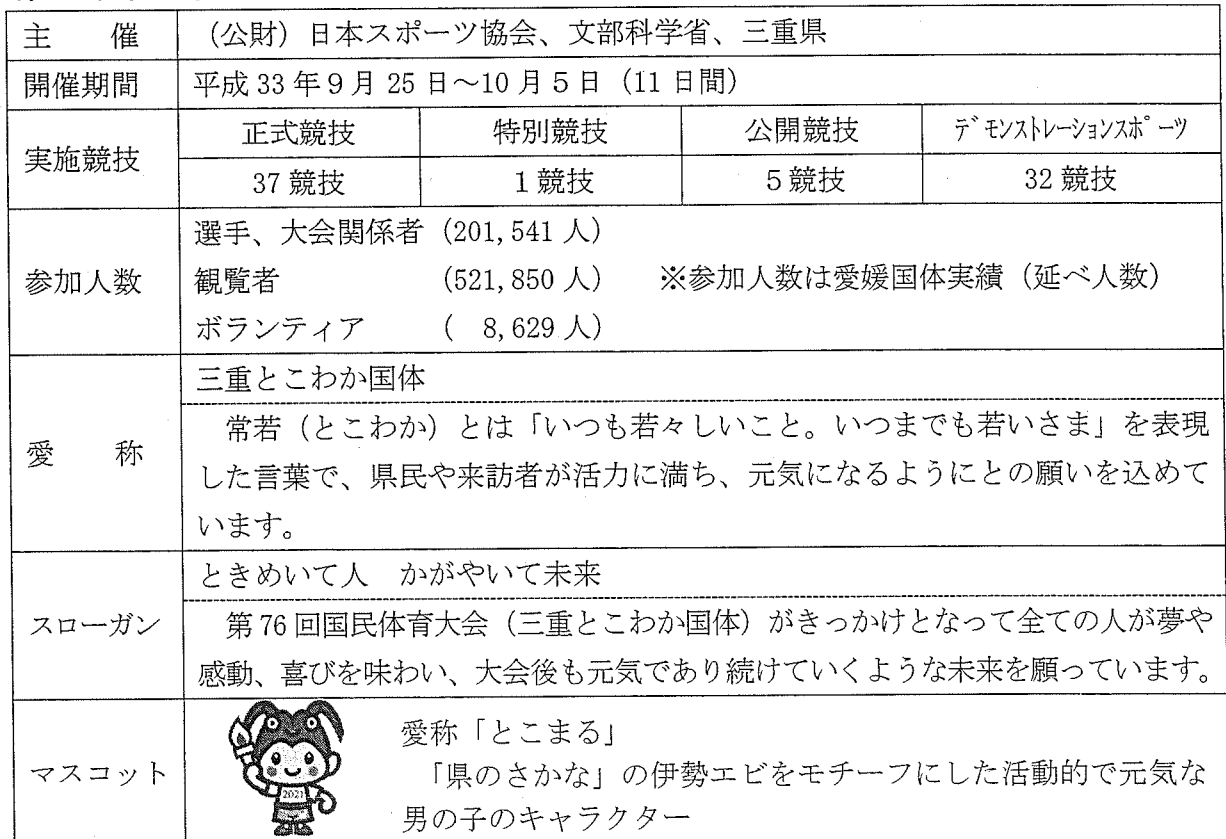 主　催　（公財）日本スポーツ協会、文部科学省、三重県
開催期間　平成33年９月25日～10月５日（11日間）
実施競技　正式競技　特別競技　公開競技　ﾃﾞﾓﾝｽﾄﾚｰｼｮﾝｽﾎﾟｰﾂ
37競技　１競技　５競技　32競技
参加人数　選手、大会関係者（201,541人）
観覧者　（521,850人）　※参加人数は愛媛国体実績（延べ人数）
ボランティア　（　8,629人）
愛　称　三重とこわか国体
常若（とこわか）とは「いつも若々しいこと。いつまでも若いさま」を表現
した言葉で、県民や来訪者が活力に満ち、元気になるようにとの願いを込めて
います。
スローガン　ときめいて人　かがやいて未来
第76回国民体育大会（三重とこわか国体）がきっかけとなって全ての人が夢や
感動、喜びを味わい、大会後も元気であり続けていくような未来を願っています。
マスコット　愛称「とこまる」
「県のさかな」の伊勢エビをモチーフにした活動的で元気な
男の子のキャラクター
2021